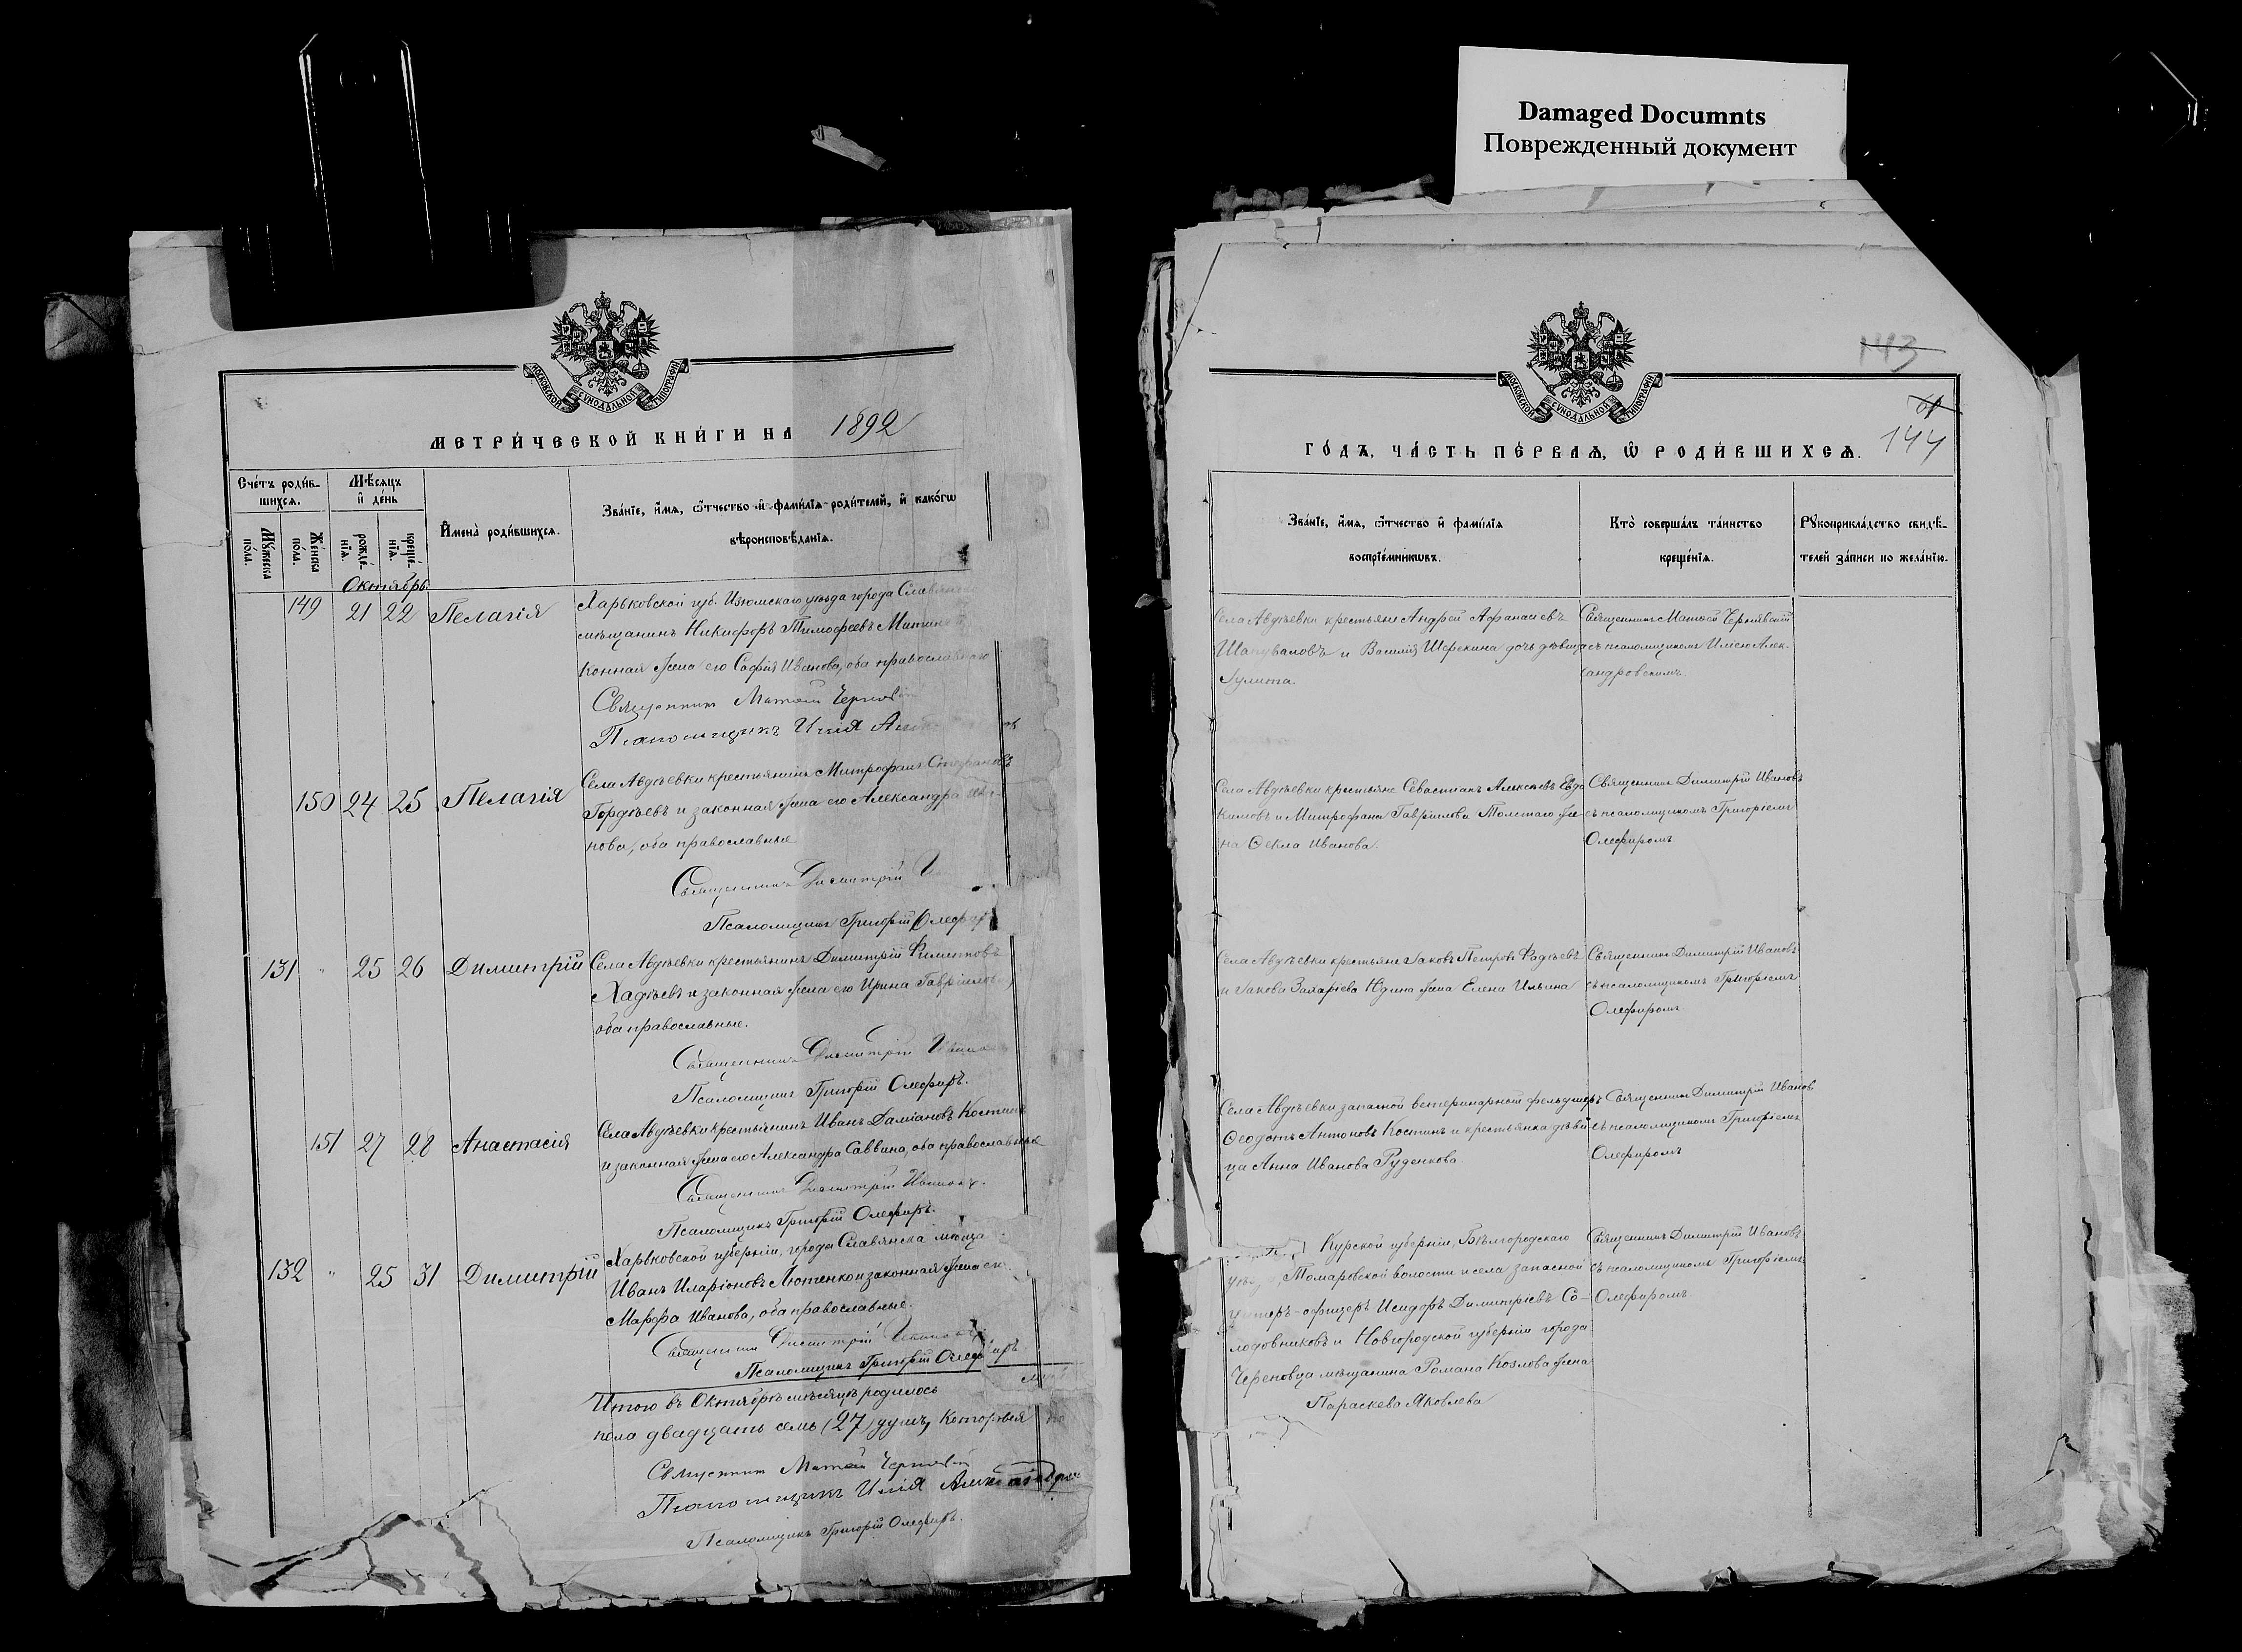 Damaged Documnts
Поврежденный документ
МОСКОВСКОЙ СѴНОДАЛЬНОЙ ТИПОГРАФІИ
МЕТРИ́ЧЕСКОЙ КНИ́ГИ НА 1892
Сче́тъ роди́в-
шихся.
Мѣ́сяцъ
и҆ де́нь
Му́жеска
по́ла.
Же́нска
по́ла.
рожде́-
нїѧ.
креще́-
нїѧ.
И҆мена̀ роди́вшихся.
Зва́нїе, и҆́мѧ, ѻ҆́тчество и҆ фами́лїѧ роди́телей, и҆ како́гѡ
вѣроисповѣ́данїѧ.
Октябрь
149 21 22 Пелагія
Харьковской губ. Изюмскаго уѣзда города
мѣщанинъ Никифоръ Тимофеевъ
конная жена его Софія Иванова, оба православнаго
Священникъ Матѳей
Псаломщикъ Илія
150 24 25 Пелагія
Села Авдѣевки крестьянинъ Митрофанъ Стефановъ
Гордѣевъ и законная жена его Александра
нова, оба православные
Священникъ Димитрій
Псаломщикъ Григорій Олефиръ
131 " 25 26 Димитрій
Села Авдѣевки крестьянинъ Димитрій Филиповъ
Хадѣевъ и законная жена его Ирина Гавріилова,
оба православные.
Священникъ Димитрій Ивановъ
Псаломщикъ Григорій Олефиръ.
151 27 28 Анастасія
Села Авдѣевки крестьянинъ Иванъ Даміановъ Костинъ
и законная жена его Александра Саввина, оба православные
Священникъ Димитрій Ивановъ.
Псаломщикъ Григорій Олефиръ.
132 " 25 31 Димитрій
Харьковской губерніи, города Славянска мѣща
Иванъ Иларіоновъ Лютенко и законная жена его
Марфа Иванова, оба православные.
Священникъ Димитрій Ивановъ
Псаломщикъ Григорій Олефиръ
Итого въ Октябрѣ мѣсяцѣ родилось
пола двадцать семь (27) душъ,
Священникъ Матѳей
Псаломщикъ Илія
Псаломщикъ Григорій Олефиръ.
143
144
МОСКОВСКОЙ СѴНОДАЛЬНОЙ ТИПОГРАФІИ
ГО́ДЪ, ЧА́СТЬ ПЕ́РВАѦ, Ѡ҆ РОДИ́ВШИХСѦ.
Зва́нїе, и҆́мѧ, ѻ҆́тчество и҆ фами́лїѧ
воспрїе́мниковъ.
Кто̀ соверша́лъ та́инство
креще́нїѧ.
Рꙋкоприкла́дство свидѣ́-
телей за́писи по жела́нїю.
Села Авдѣевки крестьяне Андрей Афанасіевъ
Шаповаловъ и Василія Шерекина дочь дѣвица
Іулита.
Священникъ Матѳей Чернявскій
съ псаломщикомъ Иліею Алек-
сандровскимъ.
Села Авдѣевки крестьяне Севастіанъ Алексѣевъ Евдо
кимовъ и Митрофана Гавріилова Толстаго же-
на Ѳекла Иванова.
Священникъ Димитрій Ивановъ
съ псаломщикомъ Григоріемъ
Олефиромъ
Села Авдѣевки крестьяне Іаковъ Петровъ Фадѣевъ
и Іакова Захаріева Юдина жена Елена Ильина
Священникъ Димитрій Ивановъ
съ псаломщикомъ Григоріемъ
Олефиромъ
Села Авдѣевки запасной ветеринарный фельдшеръ
Ѳеодотъ Антоновъ Костинъ и крестьянка дѣви
ца Анна Иванова Руденкова.
Священникъ Димитрій Ивановъ
съ псаломщикомъ Григоріемъ
Олефиромъ
Курской губерніи, Бѣлгородскаго
Томаровской волости и села запасной
унтеръ-офицеръ Исидоръ Димитріевъ Со-
лодовниковъ и Новгородской губерніи города
Череповца мѣщанина Романа Козлова жена
Параскева Яковлева
Священникъ Димитрій Ивановъ
съ псаломщикомъ Григоріемъ
Олефиромъ.